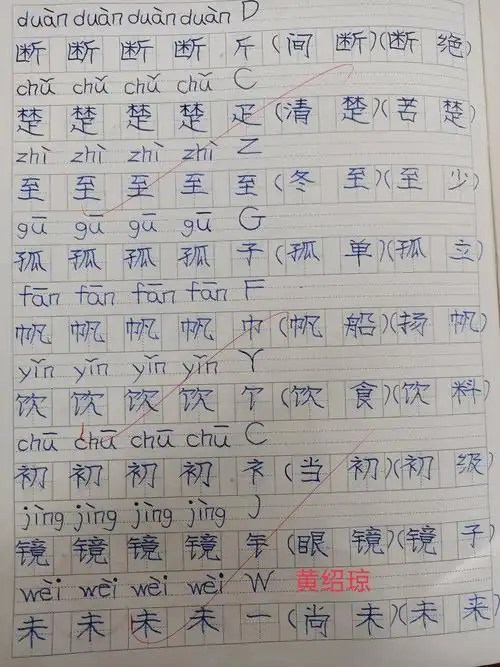 duàn duàn duàn duàn D
断 断 断 断 斤 (间 断)(断 绝)
chǔ chǔ chǔ chǔ C
楚 楚 楚 楚 疋 (清 楚)(苦 楚)
zhì zhì zhì zhì Z
至 至 至 至 至 (冬 至)(至 少)
gū gū gū gū G
孤 孤 孤 孤 子 (孤 单)(孤 立)
fān fān fān fān F
帆 帆 帆 帆 巾 (帆 船)(扬 帆)
yǐn yǐn yǐn yǐn Y
饮 饮 饮 饮 饣 (饮 食)(饮 料)
chū chū chū chū C
初 初 初 初 衤 (当 初)(初 级)
jìng jìng jìng jìng J
镜 镜 镜 镜 钅 (眼 镜)(镜 子)
wèi wèi wèi wèi W 黄绍琼
未 未 未 未 一 (尚 未)(未 来)